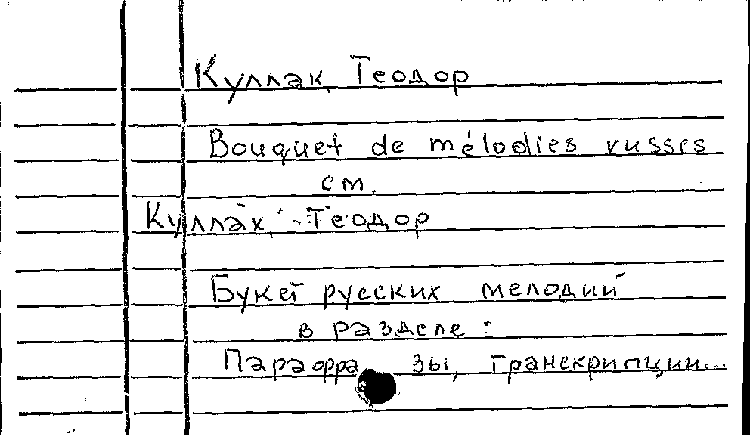 Куллак, Теодор
Bouquet de mélodies russes
см.
Куллак, Теодор
Букет русских мелодий
в разделе:
Парафразы, транскрипции...